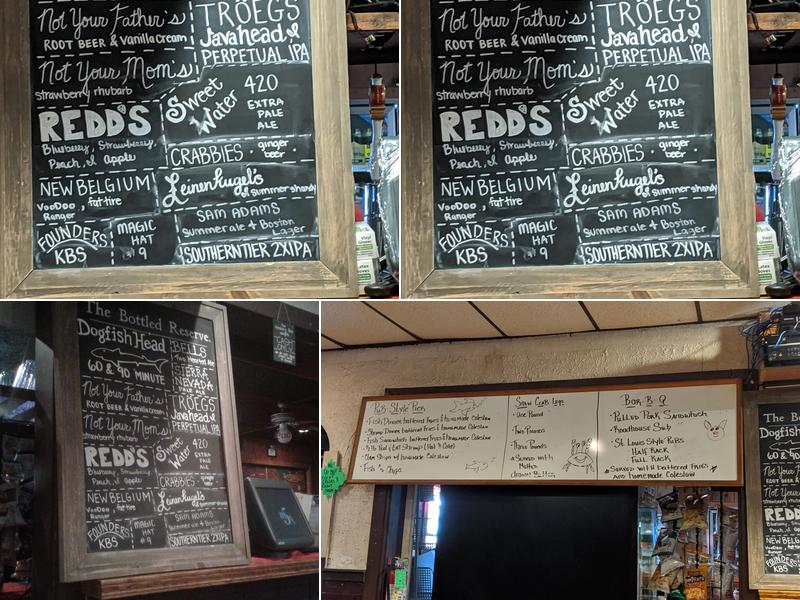 Not Your Father's
ROOT BEER & Vanilla Cream
Not Your Mom's
strawberry rhubarb
REDD'S
Blueberry, Strawberry,
Peach, & Apple
NEW BELGIUM
VooDoo, fat tire
Ranger
FOUNDERS
KBS
MAGIC
HAT
9
TRÖEGS
Javahead &
PERPETUAL IPA
Sweet
Water
420
EXTRA
PALE
ALE
CRABBIES · ginger
beer
Leinenkugel's
summer shandy
SAM ADAMS
Summer ale & Boston
Lager
SOUTHERNTIER 2XIPA
Not Your Father's
ROOT BEER & Vanilla Cream
Not Your Mom's
strawberry rhubarb
REDD'S
Blueberry, Strawberry,
Peach, & Apple
NEW BELGIUM
VooDoo, fat tire
Ranger
FOUNDERS
KBS
MAGIC
HAT
9
TRÖEGS
Javahead &
PERPETUAL IPA
Sweet
Water
420
EXTRA
PALE
ALE
CRABBIES · ginger
beer
Leinenkugel's
summer shandy
SAM ADAMS
Summer ale & Boston
Lager
SOUTHERNTIER 2XIPA
The Bottled Reserve
Dogfish Head
60 & 90 MINUTE
Not Your Father's
ROOT BEER & Vanilla Cream
Not Your Mom's
strawberry rhubarb
REDD'S
Blueberry, Strawberry,
Peach, & Apple
NEW BELGIUM
VooDoo, fat tire
Ranger
FOUNDERS
KBS
MAGIC
HAT
#9
BELLS
Two Hearted Ale
SIERRA
NEVADA
PALE ALE
TRÖEGS
Javahead &
PERPETUAL IPA
Sweet
Water
420
EXTRA
PALE
ALE
CRABBIES ginger
beer
Leinenkugel's
summer shandy
SAM ADAMS
Summer ale & Boston
Lager
SOUTHERNTIER 2XIPA
CASH
Pub Style Fier
· Fish Dinner battered Fries & Homemade Coleslaw
· Shrimp Dinner battered Fries & Homemade Coleslaw
· Fish Sandwich battered Fries & Homemade Coleslaw
· Clam Strips w/ homemade Coleslaw
· Fish & Chips
Snow Crab Legs
· One Pound
· Two Pounds
· Three Pounds
Served with
Melted
Bar B Q
· Pulled Pork Sandwich
· Roadhouse
· St. Louis Style Ribs
Half Rack
Full Rack
Served with battered Fries
and Homemade Coleslaw
The
Dogfish
60 & 90
Not Your
ROOT BEER
Not Your
REDD
Blueberry,
Peach,
NEW BEL
VooDoo
Ranger
FOUNDERS
KBS